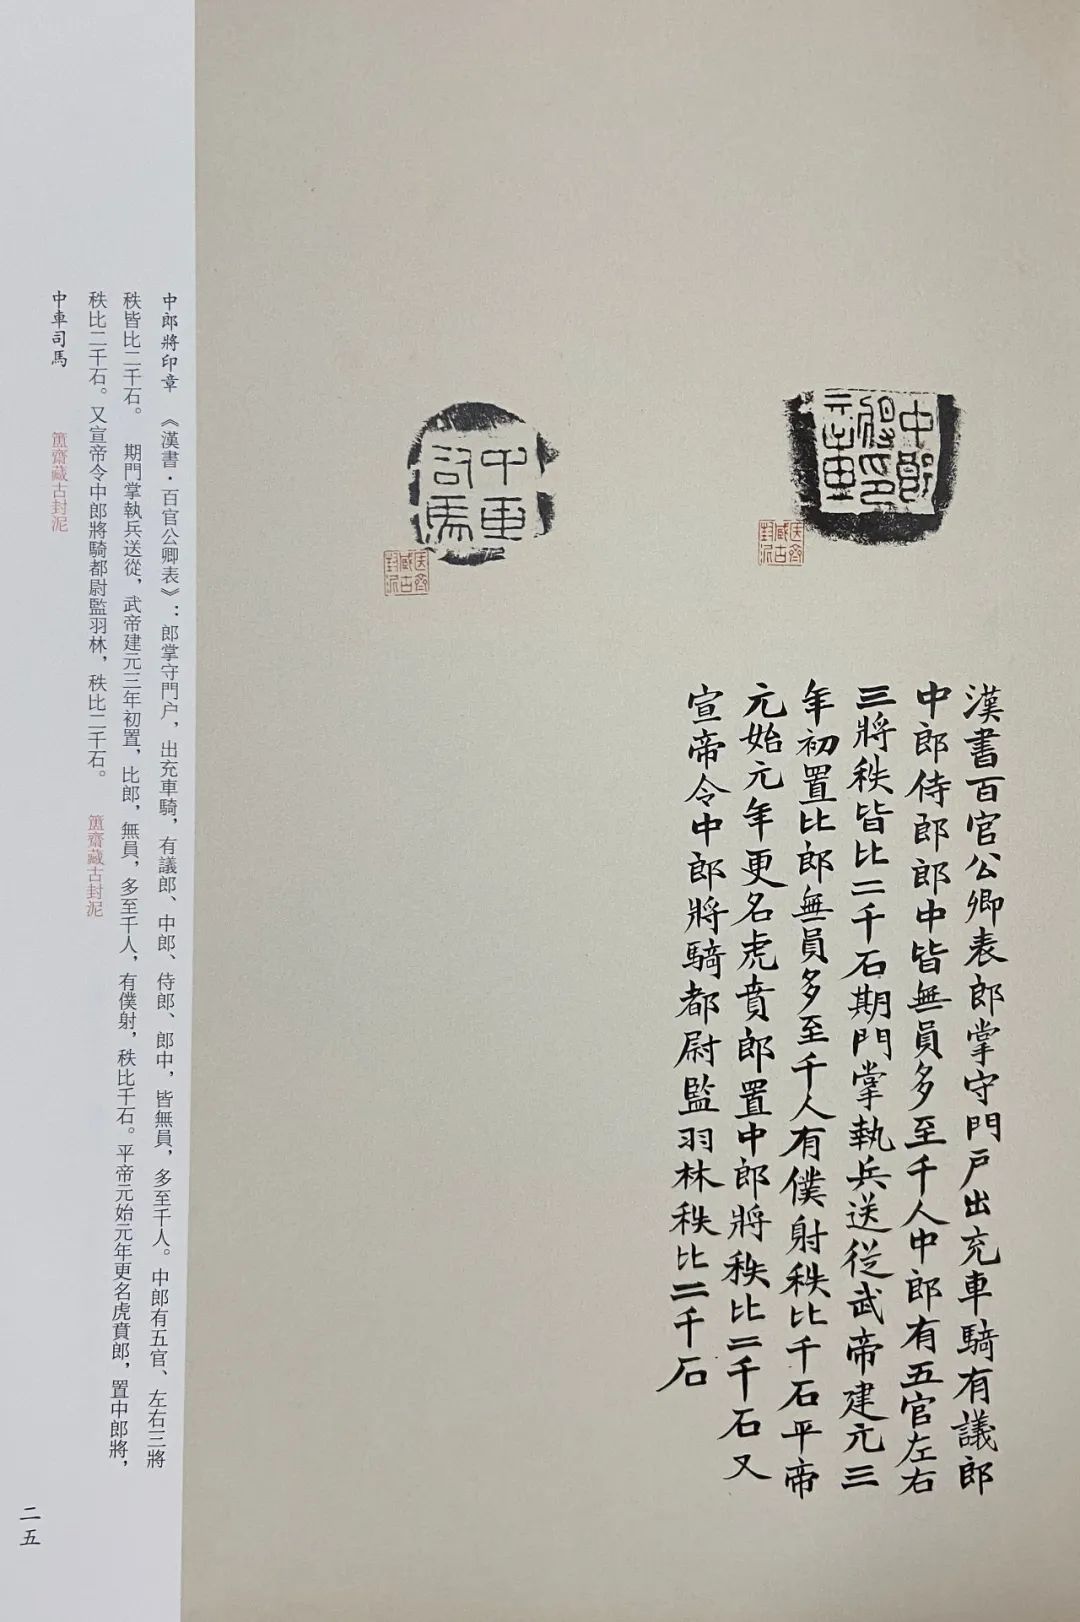 中郎
將印
章
簠齋
藏古
封泥
漢書百官公卿表郎掌守門戶出充車騎有議郎
中郎侍郎郎中皆無員多至千人中郎有五官左右
三將秩皆比二千石期門掌執兵送從武帝建元三
年初置比郎無員多至千人有僕射秩比千石平帝
元始元年更名虎賁郎置中郎將秩比二千石又
宣帝令中郎將騎都尉監羽林秩比二千石
中車
司馬
簠齋
藏古
封泥
中郎將印章 《漢書·百官公卿表》：郎掌守門户，出充車騎，有議郎、中郎、侍郎、郎中，皆無員，多至千人。中郎有五官、左右三將
秩皆比二千石。 期門掌執兵送從，武帝建元三年初置，比郎，無員，多至千人，有僕射，秩比千石。平帝元始元年更名虎賁郎，置中郎將，
秩比二千石。又宣帝令中郎將騎都尉監羽林，秩比二千石。 簠齋藏古封泥
中車司馬 簠齋藏古封泥
二五